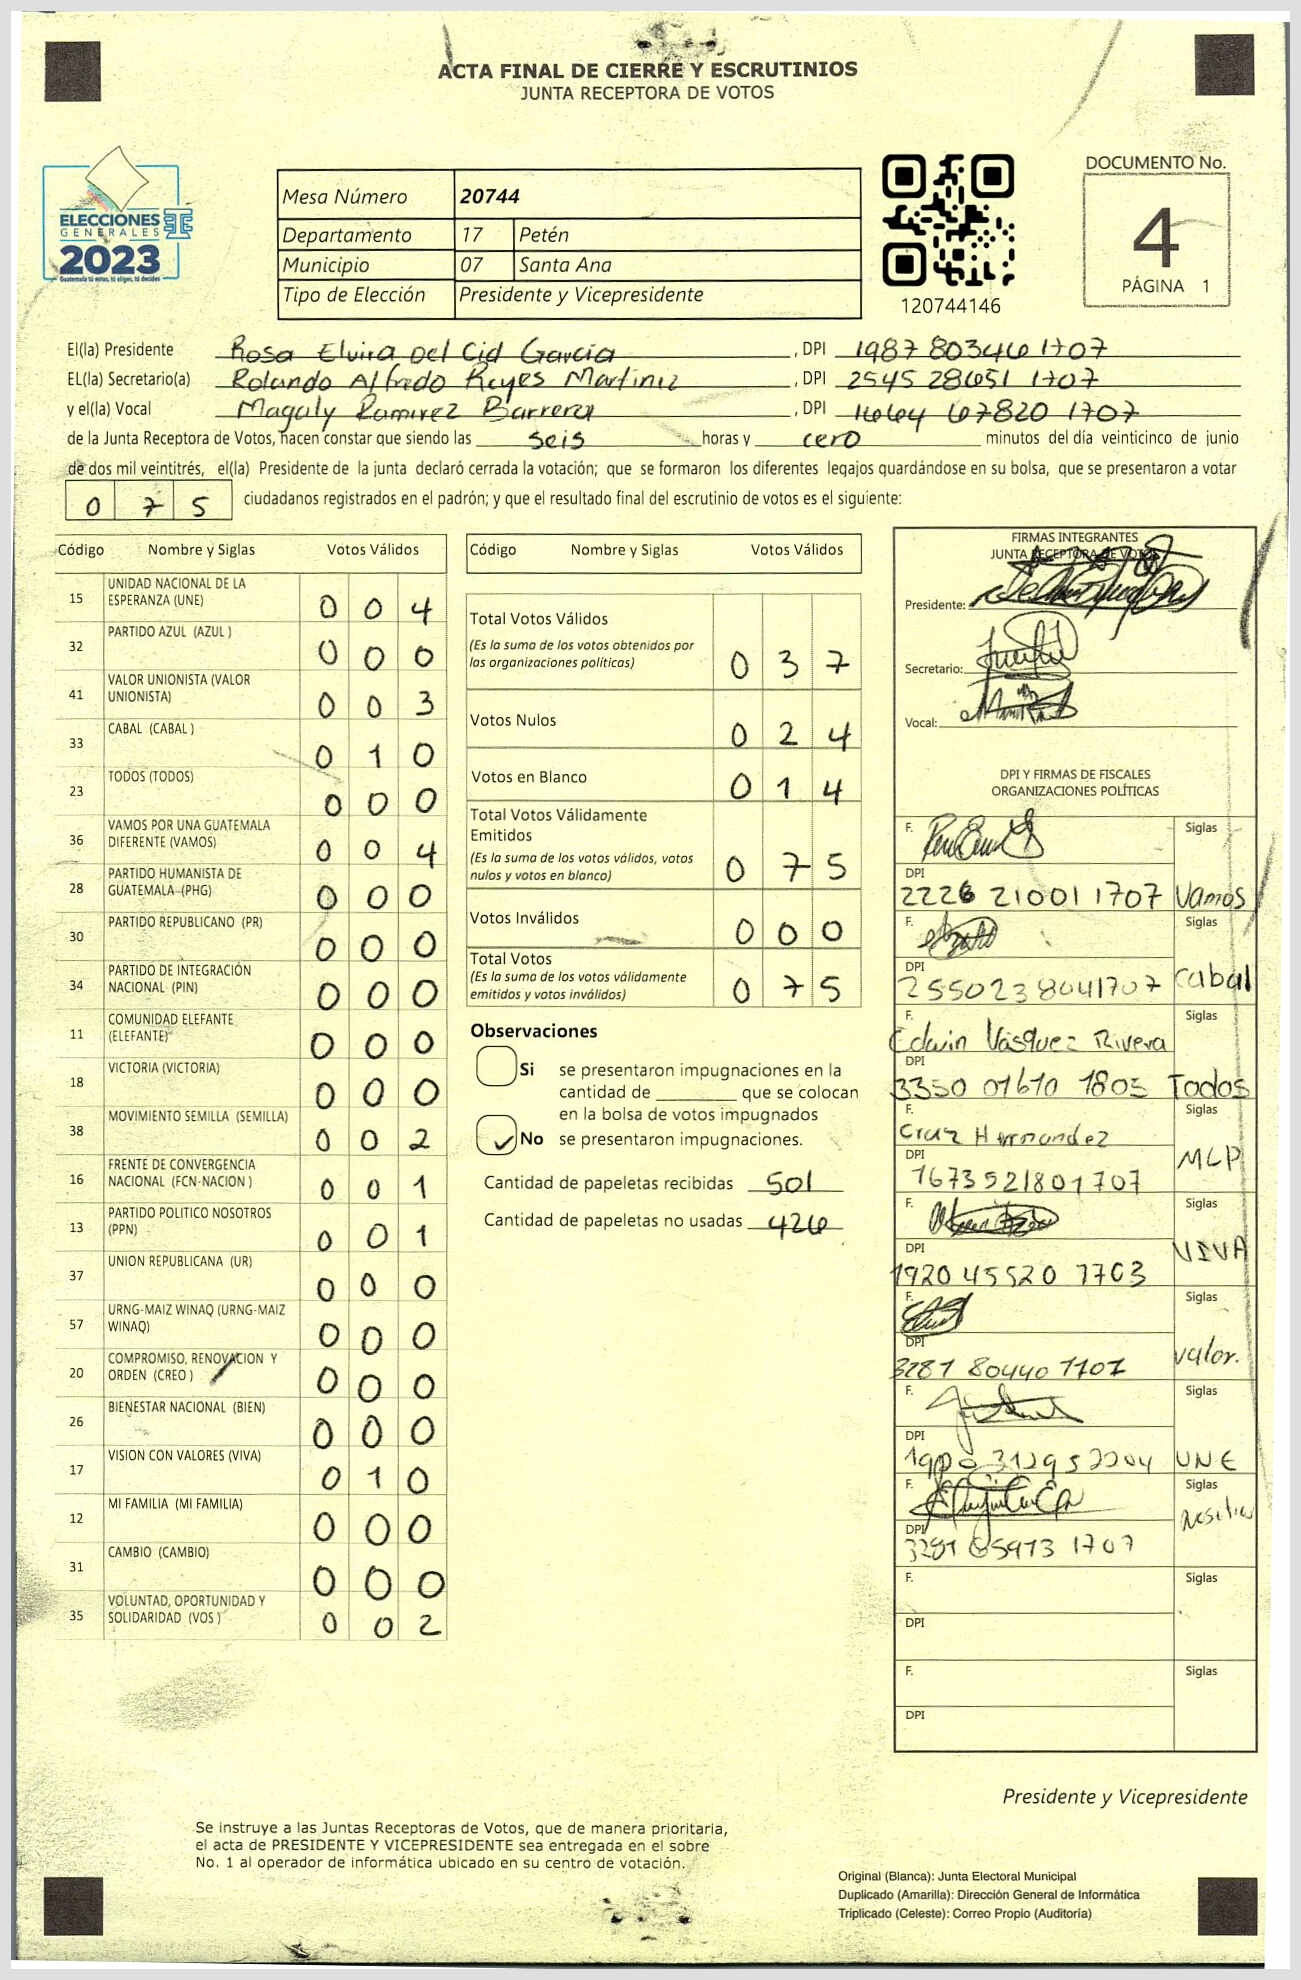 ACTA FINAL DE CIERRE Y ESCRUTINIOS
JUNTA RECEPTORA DE VOTOS
ELECCIONES
GENERALES
2023
Guatemala tú votas, tú eliges, tú decides
Mesa Número 20744
Departamento 17 Petén
Municipio 07 Santa Ana
Tipo de Elección Presidente y Vicepresidente
120744146
DOCUMENTO No.
4
PÁGINA 1
El(la) Presidente Rosa Elvira Del Cid García , DPI 1987 80346 1707
EL(la) Secretario(a) Rolando Alfredo Reyes Martinez , DPI 2545 28651 1707
y el(la) Vocal Magaly Ramirez Barrera , DPI 1664 67820 1707
de la Junta Receptora de Votos, hacen constar que siendo las seis horas y cero minutos del día veinticinco de junio
de dos mil veintitrés, el(la) Presidente de la junta declaró cerrada la votación; que se formaron los diferentes legajos guardándose en su bolsa, que se presentaron a votar
0 7 5 ciudadanos registrados en el padrón; y que el resultado final del escrutinio de votos es el siguiente:
Código Nombre y Siglas Votos Válidos
15 UNIDAD NACIONAL DE LA ESPERANZA (UNE) 0 0 4
32 PARTIDO AZUL (AZUL ) 0 0 0
41 VALOR UNIONISTA (VALOR UNIONISTA) 0 0 3
33 CABAL (CABAL ) 0 1 0
23 TODOS (TODOS) 0 0 0
36 VAMOS POR UNA GUATEMALA DIFERENTE (VAMOS) 0 0 4
28 PARTIDO HUMANISTA DE GUATEMALA (PHG) 0 0 0
30 PARTIDO REPUBLICANO (PR) 0 0 0
34 PARTIDO DE INTEGRACIÓN NACIONAL (PIN) 0 0 0
11 COMUNIDAD ELEFANTE (ELEFANTE) 0 0 0
18 VICTORIA (VICTORIA) 0 0 0
38 MOVIMIENTO SEMILLA (SEMILLA) 0 0 2
16 FRENTE DE CONVERGENCIA NACIONAL (FCN-NACION ) 0 0 1
13 PARTIDO POLITICO NOSOTROS (PPN) 0 0 1
37 UNION REPUBLICANA (UR) 0 0 0
57 URNG-MAIZ WINAQ (URNG-MAIZ WINAQ) 0 0 0
20 COMPROMISO, RENOVACION Y ORDEN (CREO ) 0 0 0
26 BIENESTAR NACIONAL (BIEN) 0 0 0
17 VISION CON VALORES (VIVA) 0 1 0
12 MI FAMILIA (MI FAMILIA) 0 0 0
31 CAMBIO (CAMBIO) 0 0 0
35 VOLUNTAD, OPORTUNIDAD Y SOLIDARIDAD (VOS ) 0 0 2
Código Nombre y Siglas Votos Válidos
Total Votos Válidos
(Es la suma de los votos obtenidos por
las organizaciones políticas) 0 3 7
Votos Nulos 0 2 4
Votos en Blanco 0 1 4
Total Votos Válidamente
Emitidos
(Es la suma de los votos válidos, votos
nulos y votos en blanco) 0 7 5
Votos Inválidos 0 0 0
Total Votos
(Es la suma de los votos válidamente
emitidos y votos inválidos) 0 7 5
Observaciones
Si se presentaron impugnaciones en la
cantidad de ________ que se colocan
en la bolsa de votos impugnados
No se presentaron impugnaciones.
Cantidad de papeletas recibidas 501
Cantidad de papeletas no usadas 426
FIRMAS INTEGRANTES
JUNTA RECEPTORA DE VOTOS
Presidente:
Secretario:
Vocal:
DPI Y FIRMAS DE FISCALES
ORGANIZACIONES POLÍTICAS
F. Siglas
DPI
2226 21001 1707 Vamos
F. Siglas
DPI
2550238041707 Cabal
F. Siglas
Edwin Vásquez Rivera
DPI
3350 01610 1805 Todos
F. Siglas
Cruz Hernandez
DPI MLP
1673521801707
F. Siglas
DPI VIVA
1920 45520 1703
F. Siglas
DPI valor.
3281 80440 1707
F. Siglas
DPI
UNE
F. Siglas
DPI
1707
F. Siglas
DPI
F. Siglas
DPI
Presidente y Vicepresidente
Se instruye a las Juntas Receptoras de Votos, que de manera prioritaria,
el acta de PRESIDENTE Y VICEPRESIDENTE sea entregada en el sobre
No. 1 al operador de informática ubicado en su centro de votación.
Original (Blanca): Junta Electoral Municipal
Duplicado (Amarilla): Dirección General de Informática
Triplicado (Celeste): Correo Propio (Auditoría)